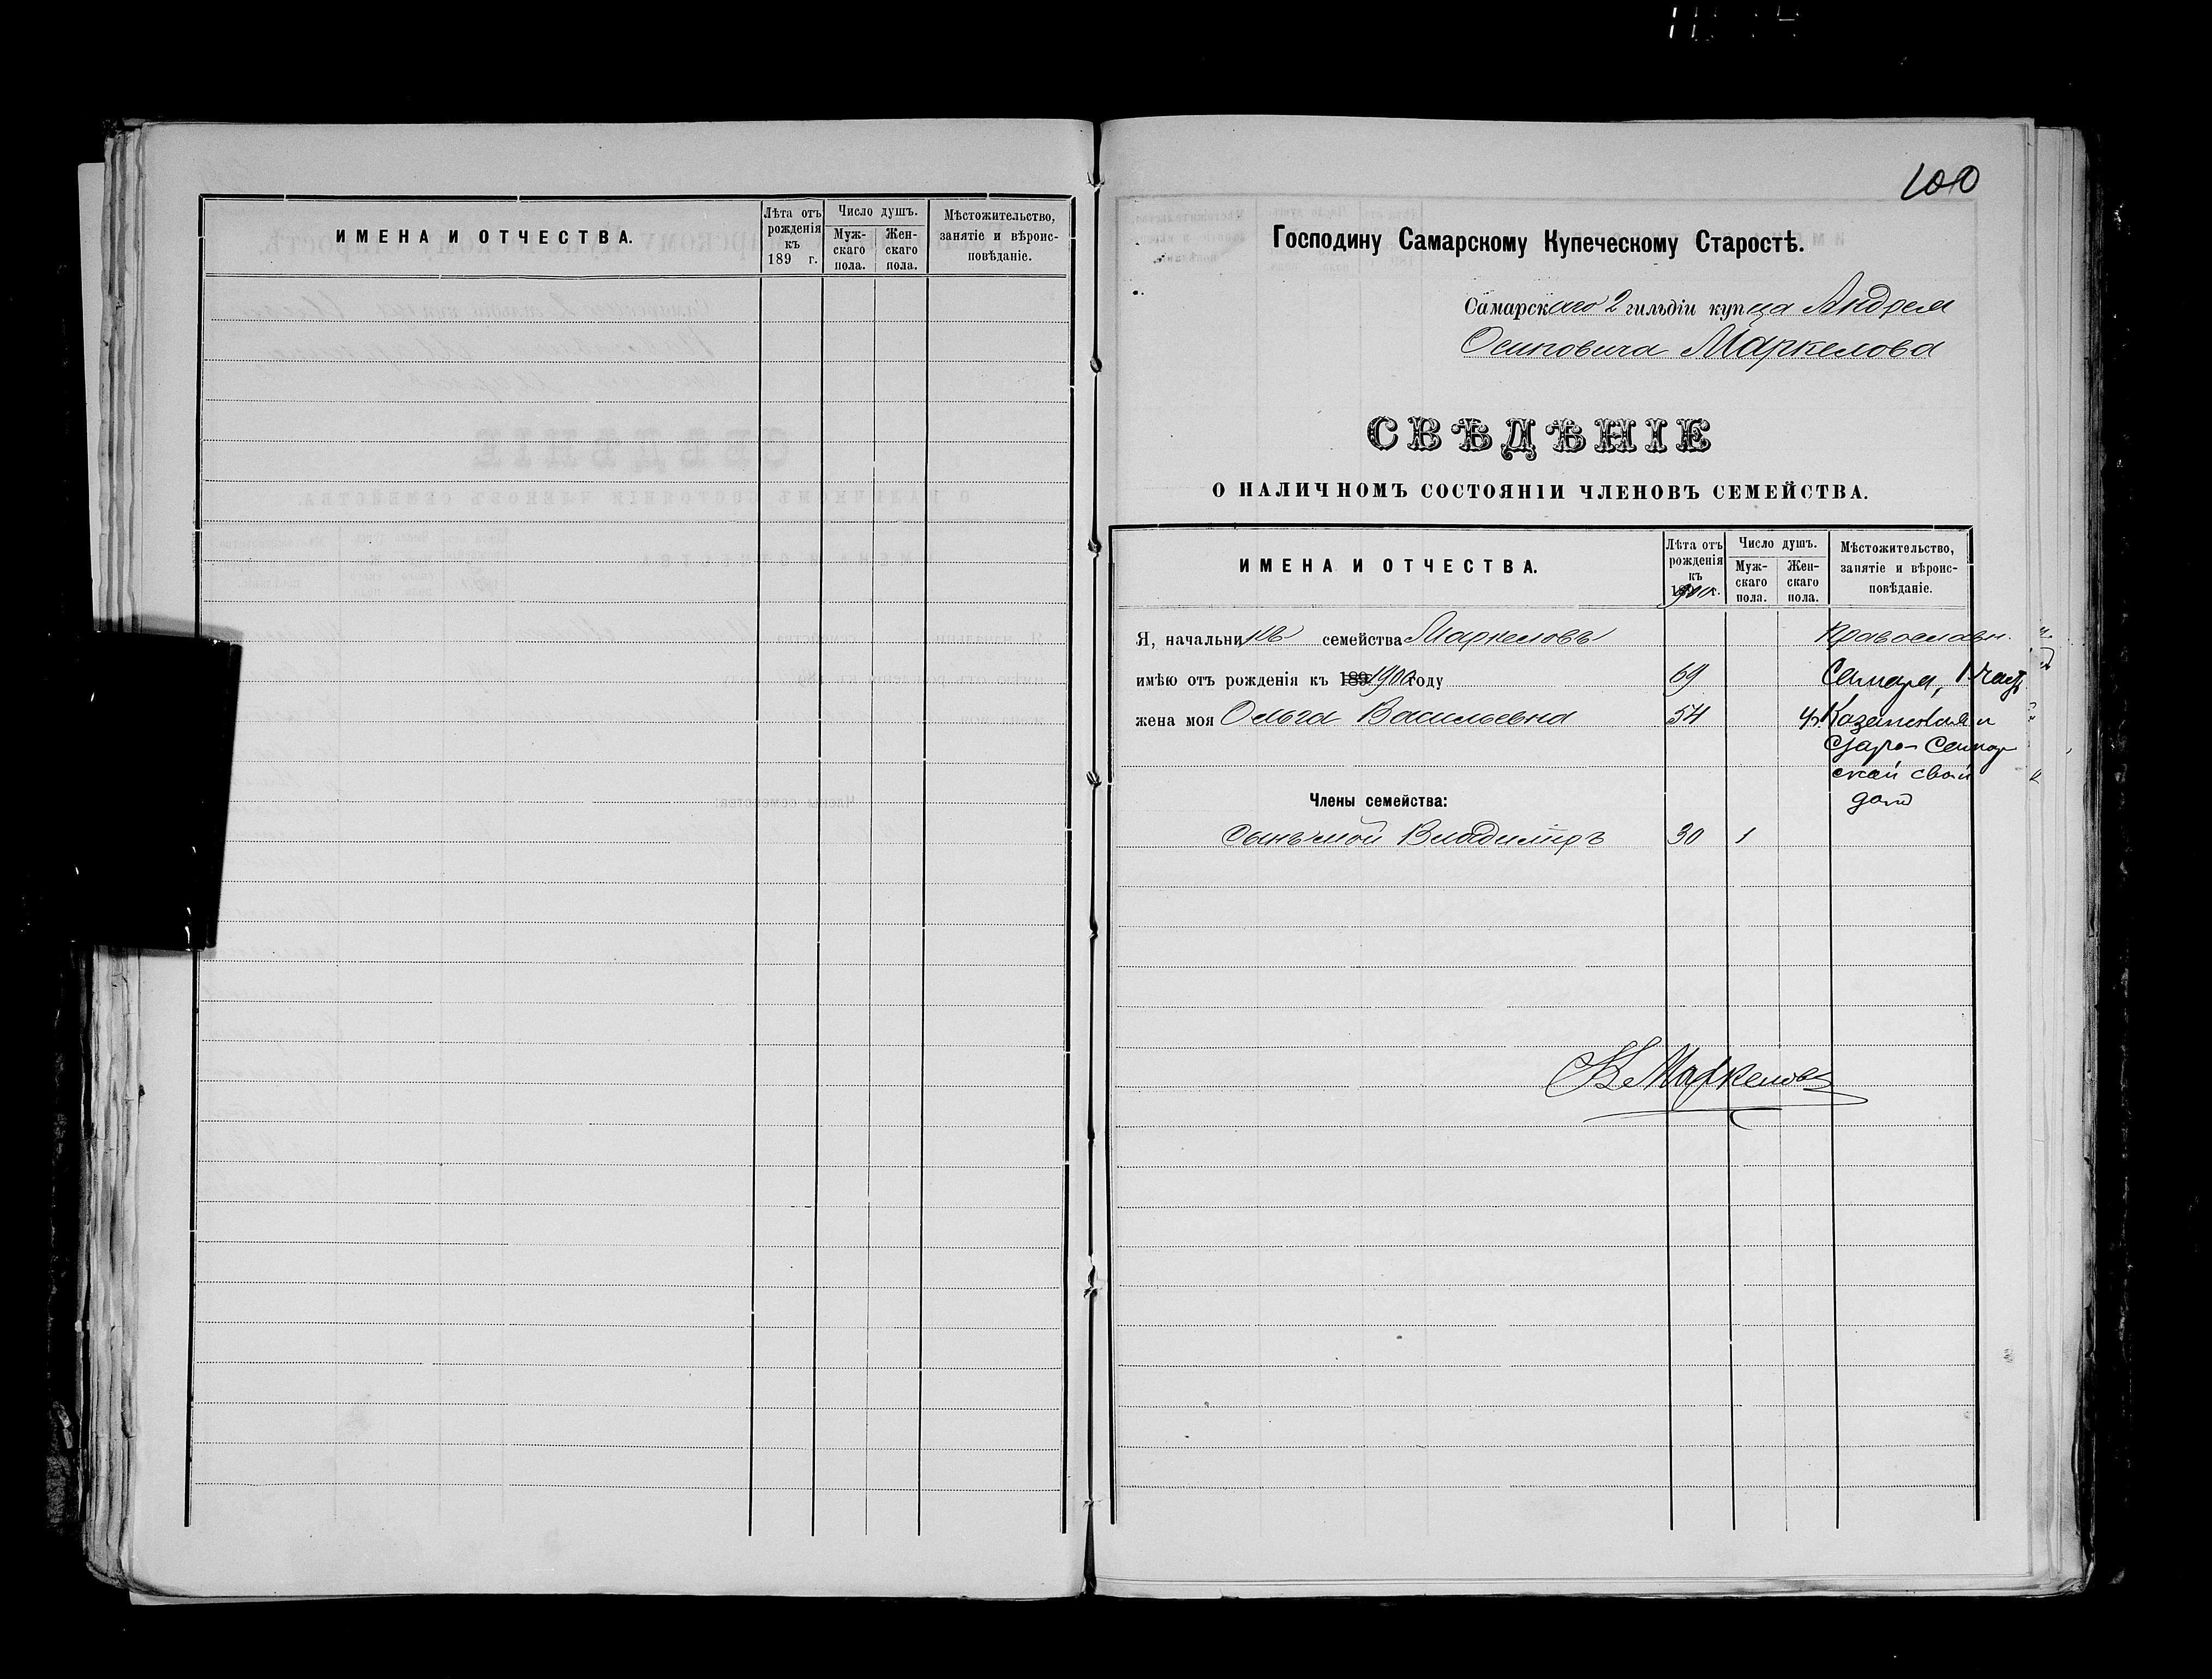 ИМЕНА И ОТЧЕСТВА.
Лѣта отъ рожденія къ 189 г.
Число душъ.
Мужскаго пола.
Женскаго пола.
Мѣстожительство, занятіе и вѣроисповѣданіе.
100
Господину Самарскому Купеческому Старостѣ.
Самарскаго 2 гильдіи купца Андрея
Осиповича Маркелова
СВѢДѢНІЕ
О НАЛИЧНОМЪ СОСТОЯНІИ ЧЛЕНОВЪ СЕМЕЙСТВА.
ИМЕНА И ОТЧЕСТВА.
Лѣта отъ
рожденія
къ
1900 г.
Число душъ.
Муж-
скаго
пола.
Жен-
скаго
пола.
Мѣстожительство,
занятіе и вѣроис-
повѣданіе.
Я, начальникъ семейства Маркеловъ Православн.
имѣю отъ рожденія къ 189 1900 году 69 Самара, 1 част
жена моя Ольга Васильевна 54 Казанская и
Старо-Самар
ской свой
домъ
Члены семейства:
Сынъ мой Владиміръ 30 1
Маркеловъ